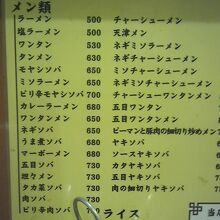 メン類
ラーメン 500
塩ラーメン 500
ワンタン 500
タンメン 600
モヤシソバ 650
ミソラーメン 650
ピリ辛モヤシソバ 680
カレーラーメン 680
ワンタンメン 680
ネギソバ 680
うま煮ソバ 680
マーボーメン 680
五目ソバ 730
坦々メン 730
タカ菜ソバ 730
肉ソバ 730
ピリ辛肉ソバ
チャーシューメン
天津メン
ネギミソラーメン
ネギチャーシューメン
ミソチャーシューメン
チャーシューワンタンメン
五目ワンタン
ピーマンと豚肉の細切り炒めメン
ヤキソバ
ソースヤキソバ
カタヤキソバ
五目ヤキソバ
肉の細切りヤキソバ
ライス